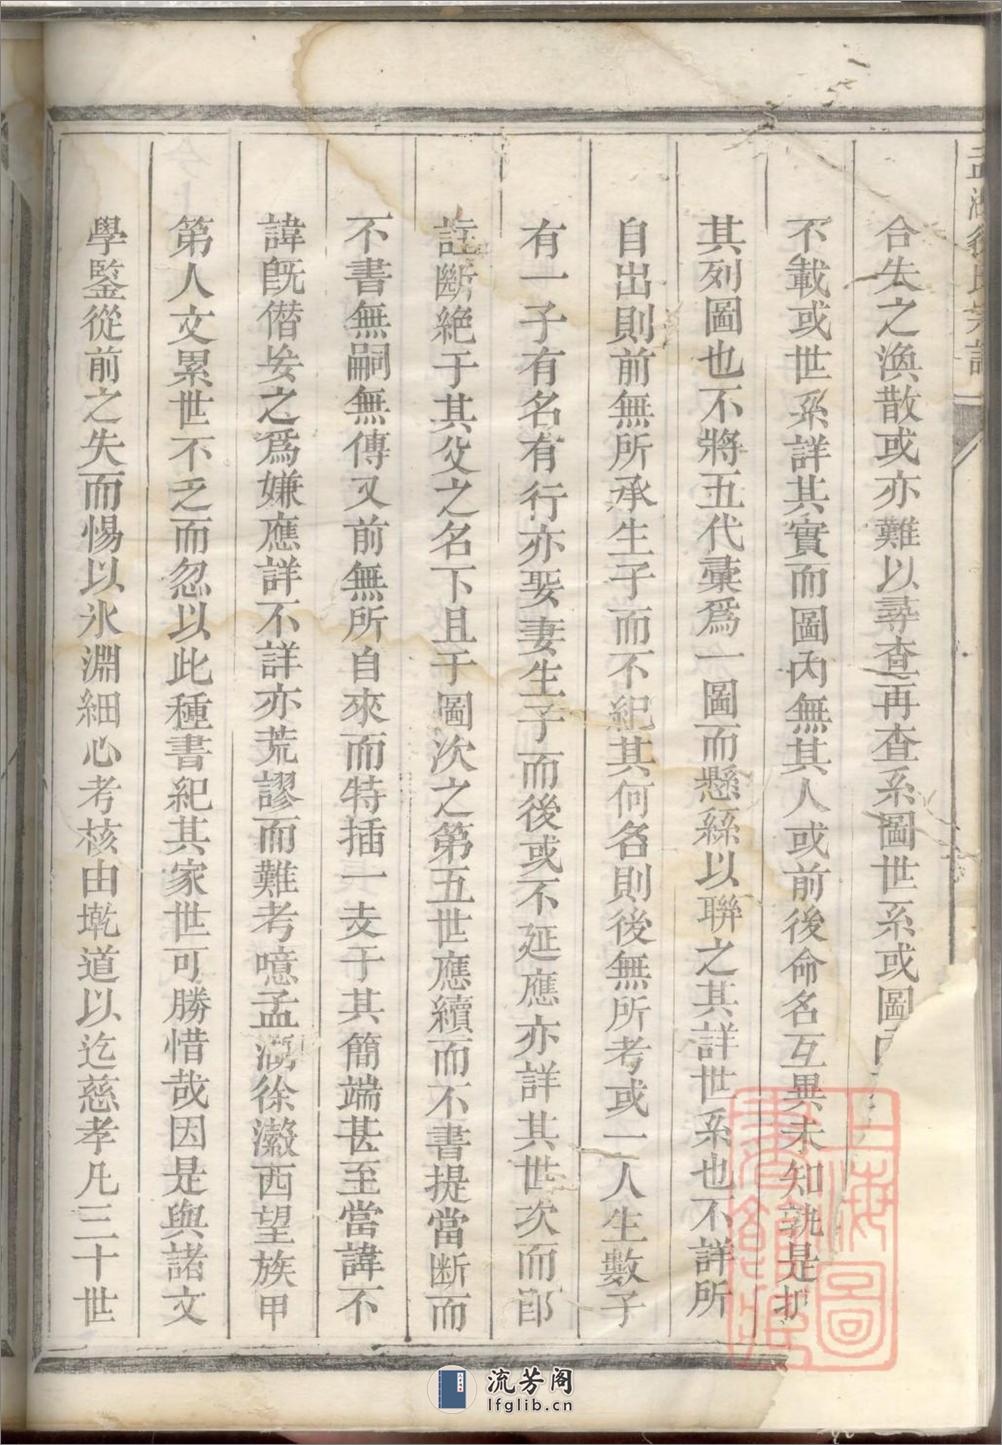 合失之渙散或亦難以尋查再查系圖世系或圖
不載或世系詳其實而圖內無其人或前後命名互異未知孰是
其列圖也不將五代彙爲一圖而懸絲以聯之其詳世系也不詳所
自出則前無所承生子而不紀其何名則後無所考或一人生數子
有一子有名有行亦娶妻生子而後或不延應亦詳其世次而卽
註斷絶于其父之名下且于圖次之第五世應續而不書提當断而
不書無嗣無傳又前無所自來而特插一支于其簡端甚至當諱不
諱旣僣妄之爲嫌應詳不詳亦荒謬而難考噫孟湖徐瀫西望族甲
第人文累世不乏而忽以此種書紀其家世可勝惜哉因是與諸文
學鑒從前之失而惕以氷淵細心考核由乾道以迄慈孝凡三十世
孟湖徐氏宗譜
上海圖書館藏
流芳阁
lfglib.cn